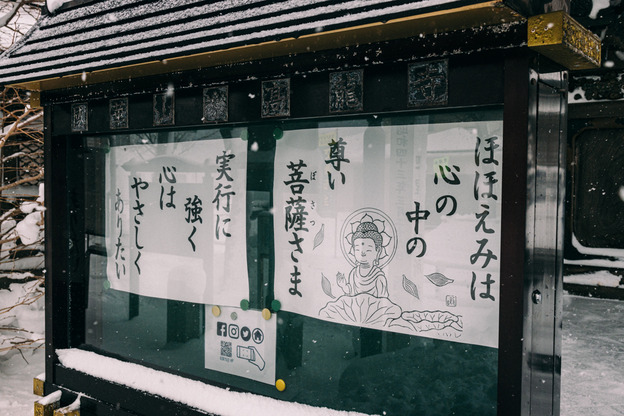 ほほえみは
心の
中の
尊い
菩薩さま
ぼさつ
実行に
強く
心は
やさしく
ありたい